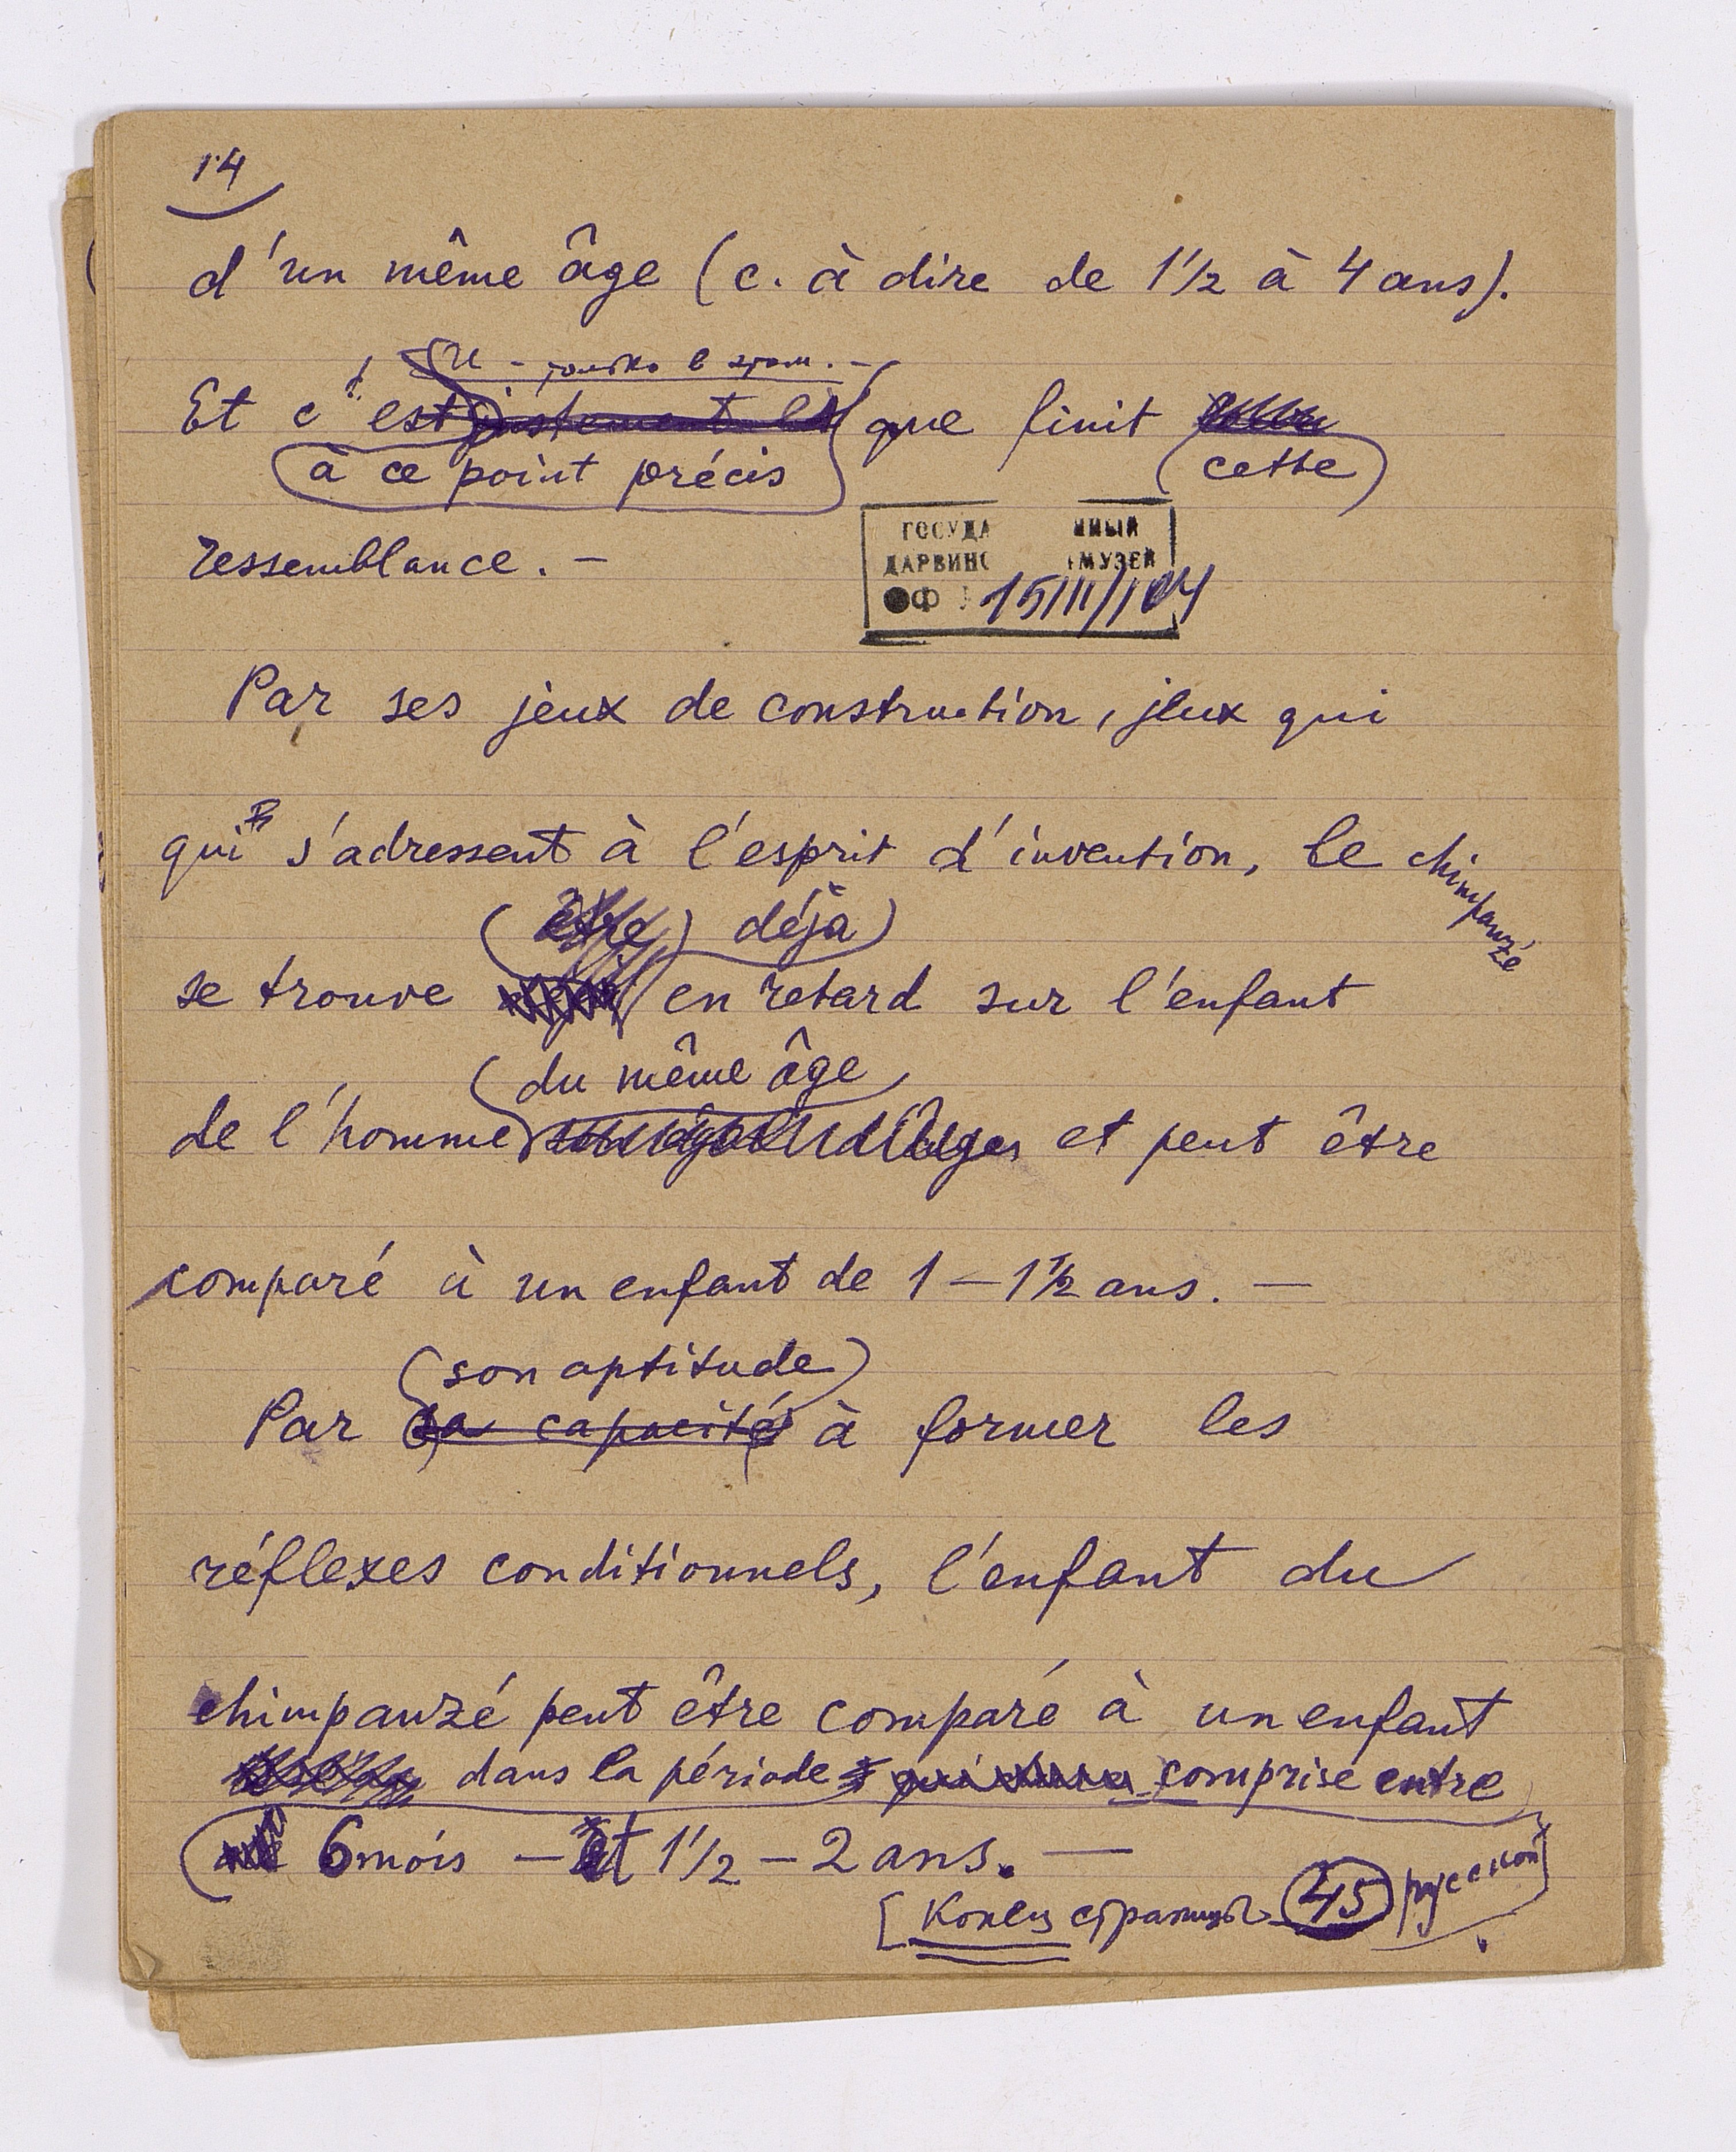 14
d'un même âge (c. à dire de 1½ à 4 ans).
только в
Et c'est justement là que finit
(à ce point précis) (cette)
ressemblance. —
ГОСУДА ННЫЙ
ДАРВИНС МУЗЕЙ
ОФ 15111/104
Par ses jeux de construction, jeux qui
qui s'adressent à l'esprit d'invention, le chimpanzé
(être) déjà)
se trouve en retard sur l'enfant
(du même âge
de l'homme et peut être
comparé à un enfant de 1 — 1½ ans. —
(son aptitude)
Par sa capacité à former les
réflexes conditionnels, l'enfant du
chimpanzé peut être comparé à un enfant
dans la période comprise entre
6 mois — et 1½ — 2 ans. —
[Конец страницы 45 русской]